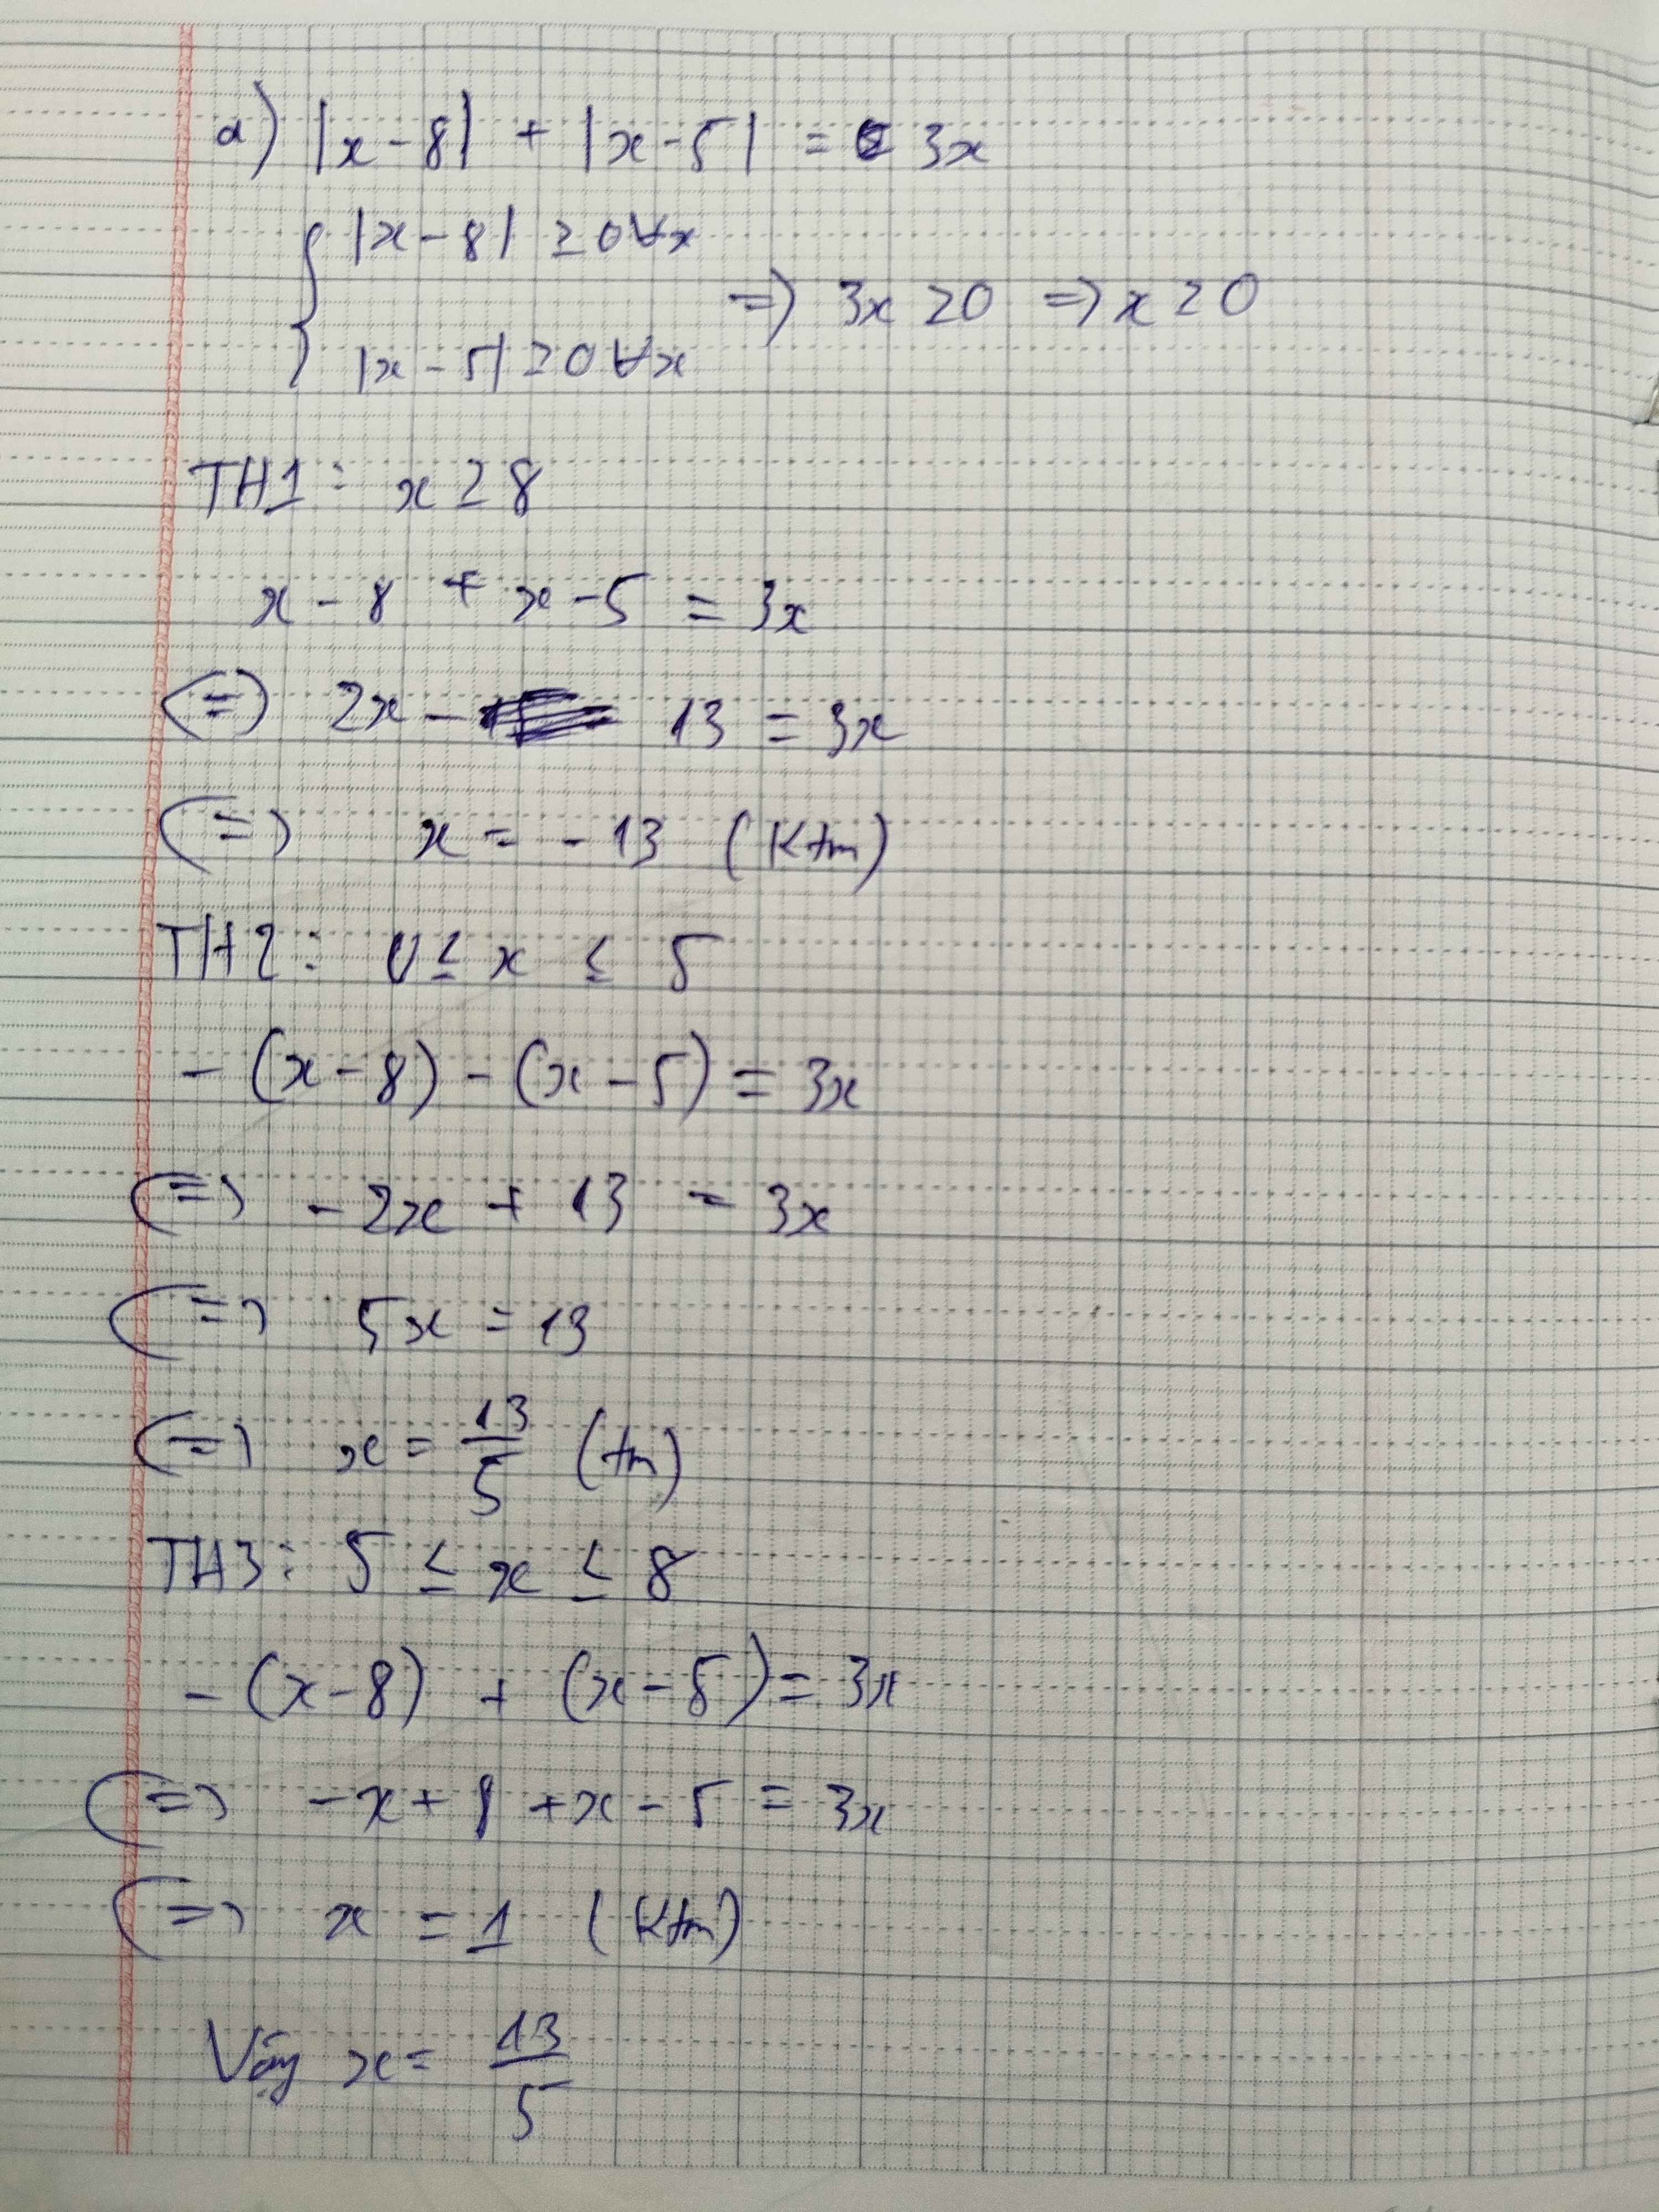 a) |x - 8| + |x - 5| = 3x
|x - 8| ≥ 0 ∀x
=> 3x ≥ 0 => x ≥ 0
|x - 5| ≥ 0 ∀x
TH1: x ≥ 8
x - 8 + x - 5 = 3x
<=> 2x - 13 = 3x
<=> x = - 13 (Ktm)
TH2: 0 ≤ x ≤ 5
- (x - 8) - (x - 5) = 3x
<=> - 2x + 13 = 3x
<=> 5x = 13
<=> x = 13/5 (tm)
TH3: 5 ≤ x ≤ 8
- (x - 8) + (x - 5) = 3x
<=> - x + 8 + x - 5 = 3x
<=> x = 1 (Ktm)
Vậy x = 13/5